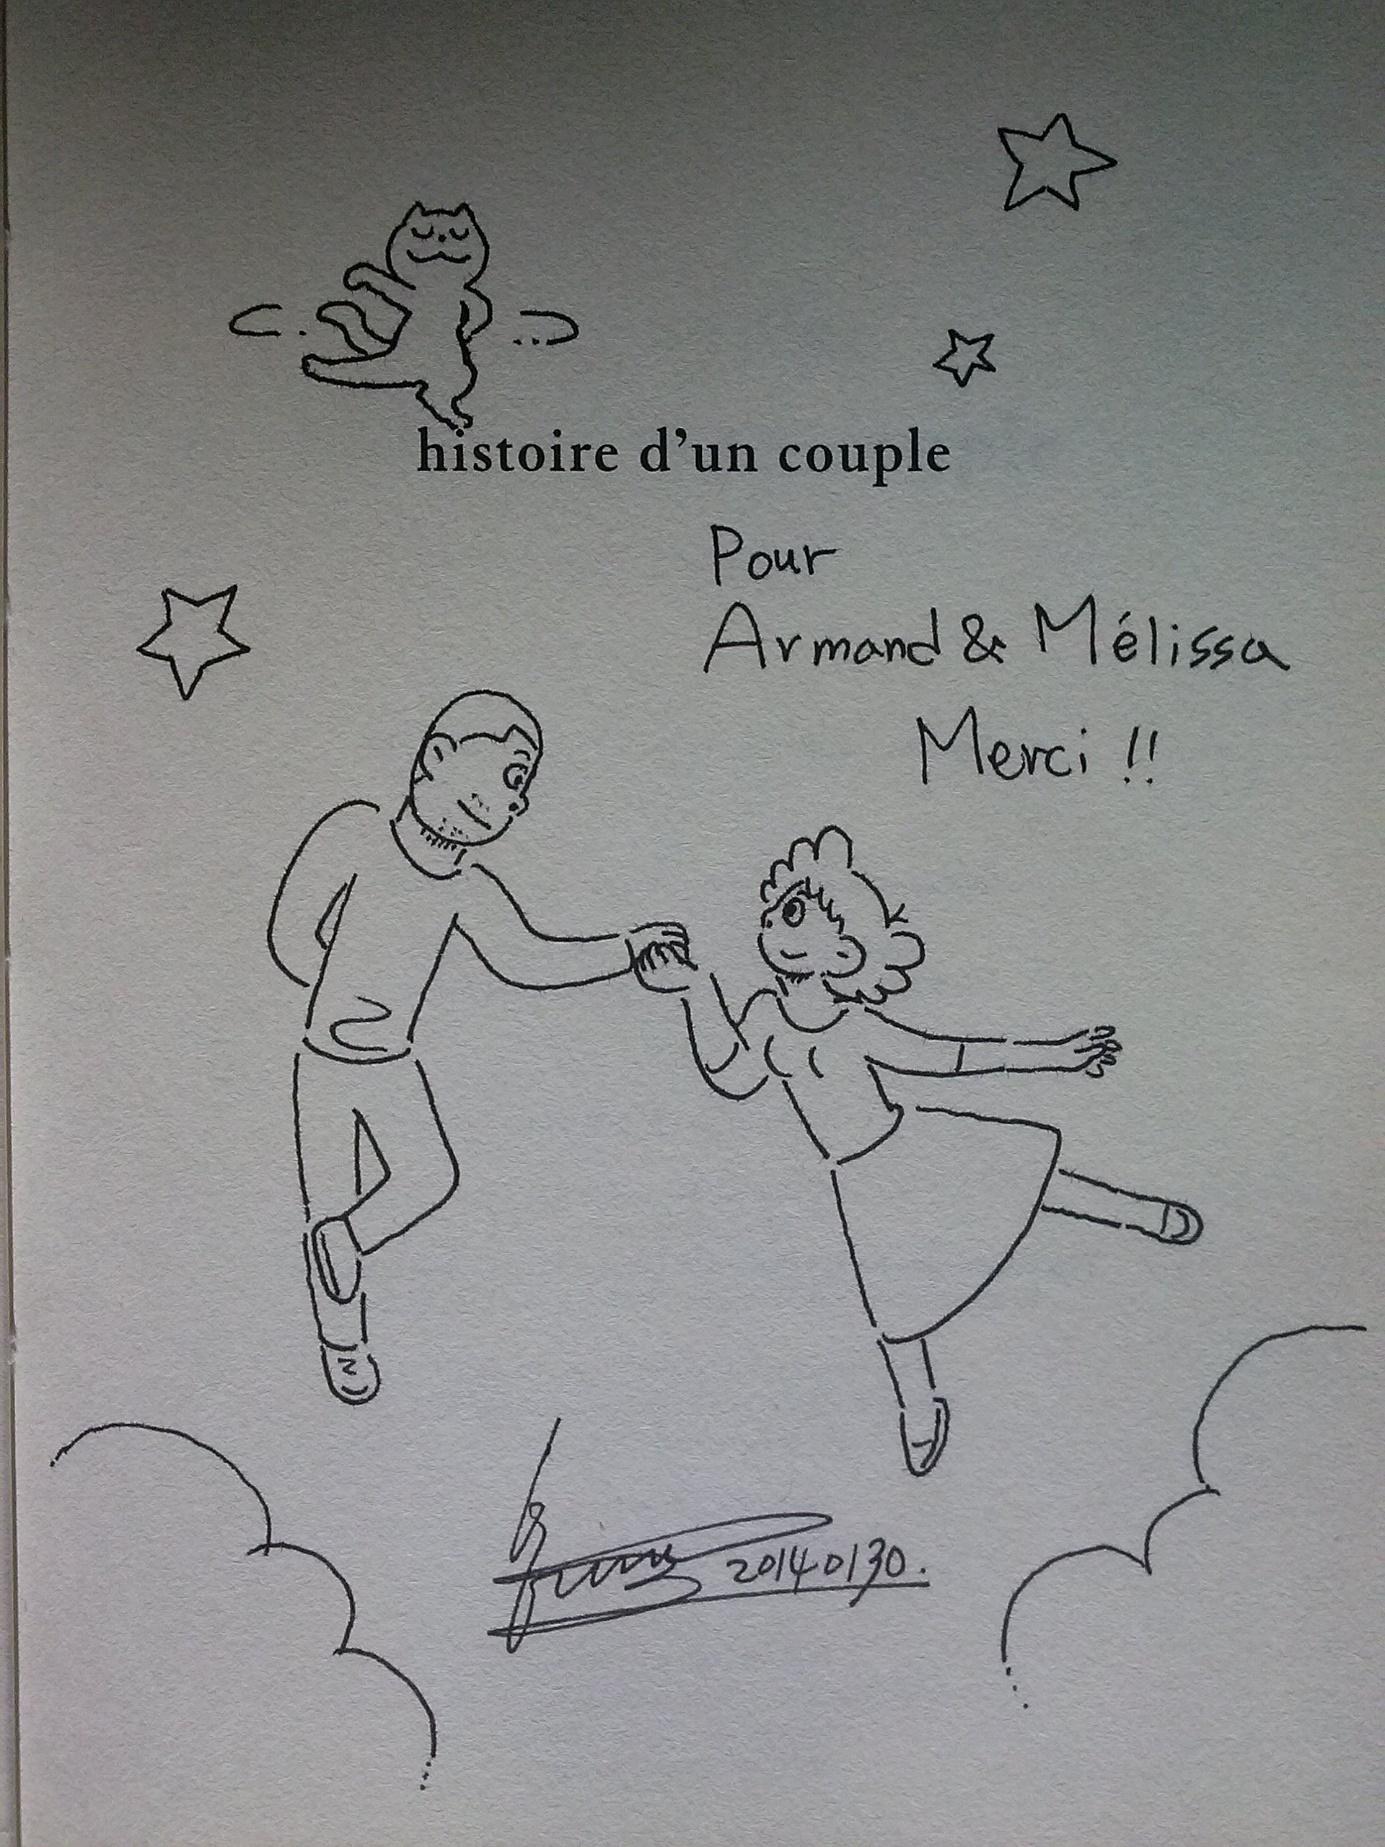 histoire d'un couple
Pour
Armand & Mélissa
Merci !!
20140130.